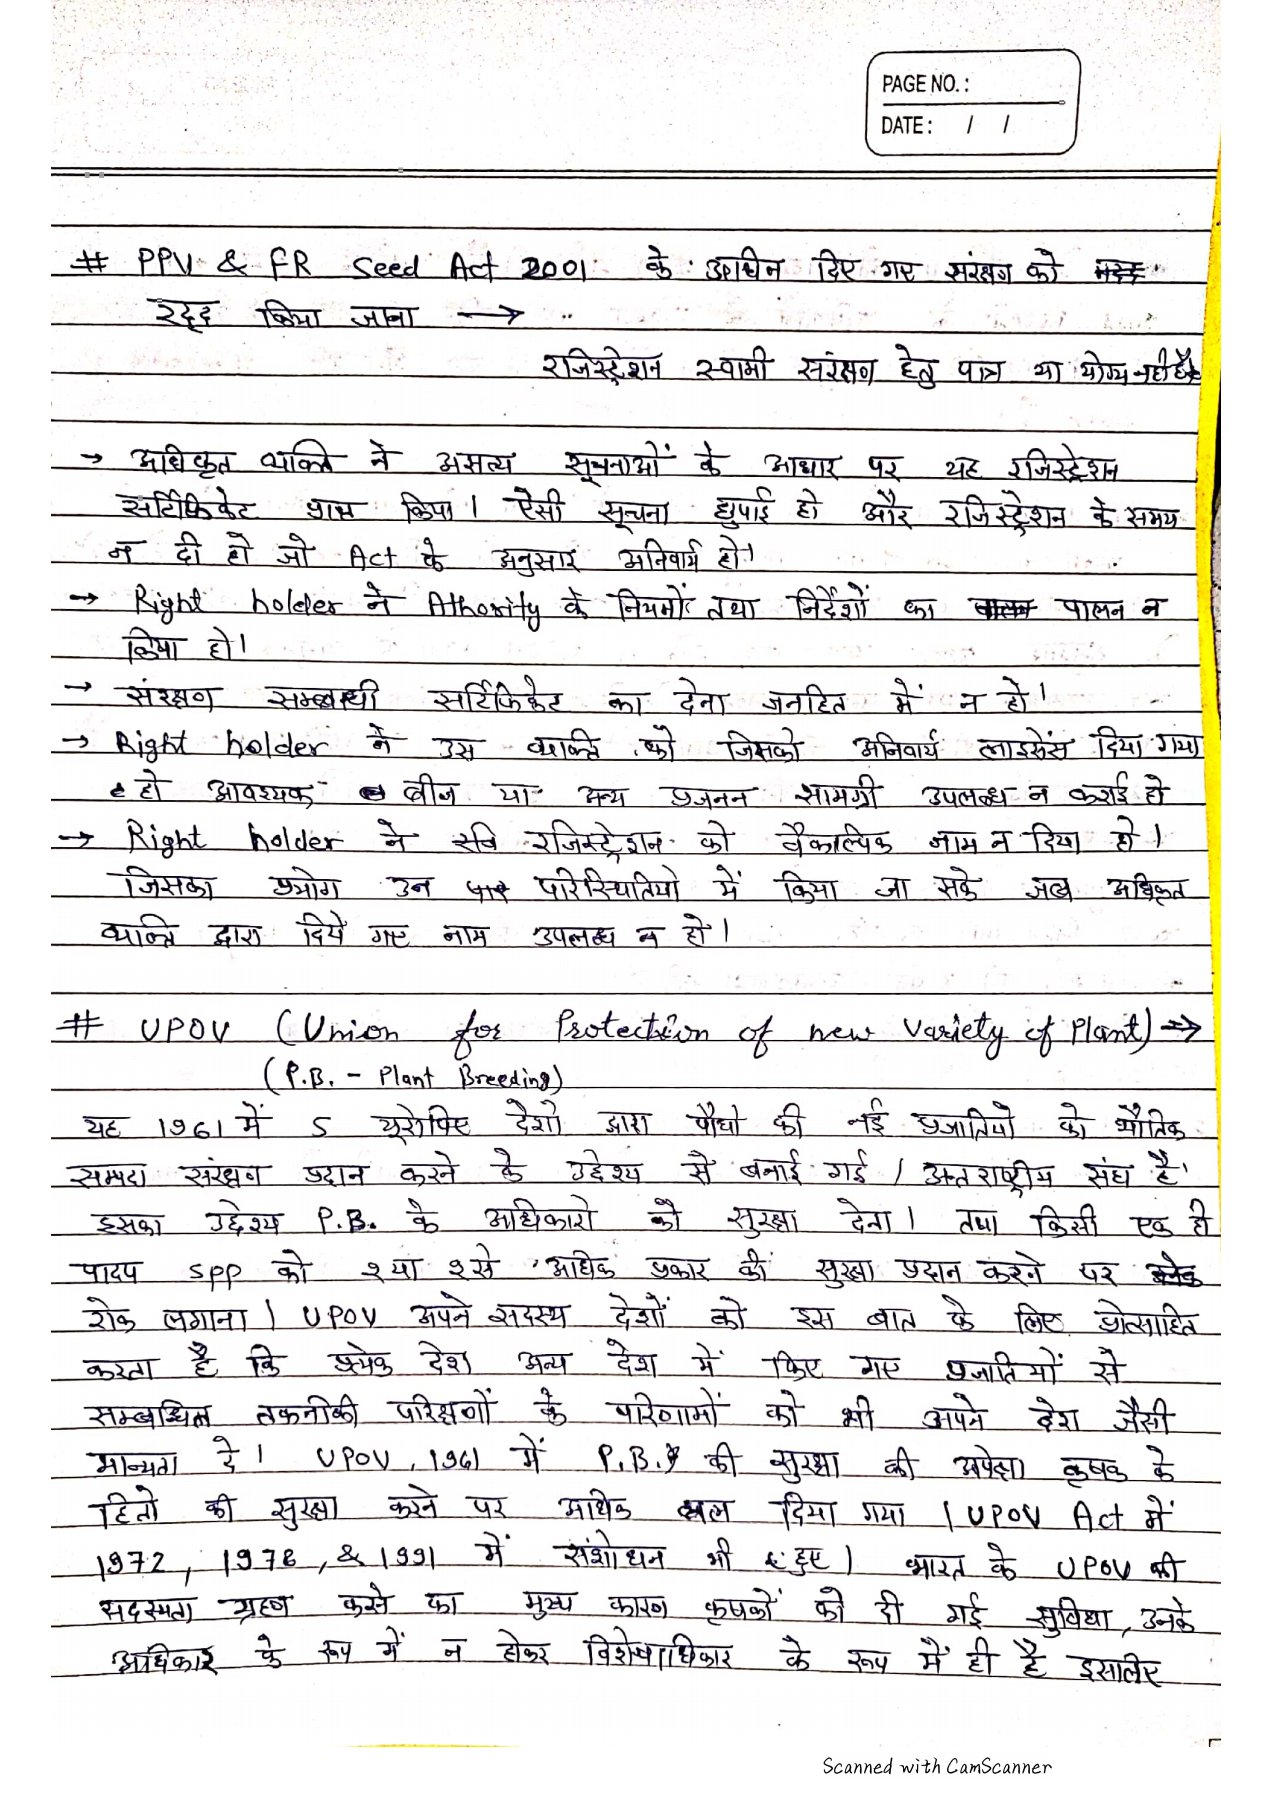 PAGE NO.:
DATE: / /
# PPV & FR Seed Act 2001 के अधीन दिए गए संरक्षण को
रद्द किया जाना →
रजिस्ट्रेशन स्वामी संरक्षण हेतु पात्र या योग्य नही है
→ अधिकृत व्यक्ति ने असत्य सूचनाओं के आधार पर यह रजिस्ट्रेशन
सर्टिफिकेट प्राप्त किया। ऐसी सूचना छुपाई हो और रजिस्ट्रेशन के समय
न दी हो जो Act के अनुसार अनिवार्य हो।
→ Right holder ने Athority के नियमों तथा निर्देशों का पालन न
किया हो।
→ संरक्षण सम्बन्धी सर्टिफिकेट का देना जनहित में न हो।
→ Right holder ने उस व्यक्ति को जिसको अनिवार्य लाइसेंस दिया गया
हो आवश्यक बीज या अन्य प्रजनन सामग्री उपलब्ध न कराई हो
→ Right holder ने रजिस्ट्रेशन को वैकल्पिक नाम न दिया हो।
जिसका प्रयोग उन परिस्थितियो में किया जा सके जब अधिकृत
व्यक्ति द्वारा दिये गए नाम उपलब्ध न हो।
# UPOV (Union for Protection of new Variety of Plant) →
(P.B. - Plant Breeding)
यह 1961 में 5 यूरोपिए देशो द्वारा पौधो की नई प्रजातियो को भौतिक
सम्पदा संरक्षण प्रदान करने के उद्देश्य से बनाई गई / अन्तराष्ट्रीय संघ है।
इसका उद्देश्य P.B. के अधिकारो को सुरक्षा देना। तथा किसी एक ही
पादप spp को २ या २ से अधिक प्रकार की सुरक्षा प्रदान करने पर
रोक लगाना। UPOV अपने सदस्य देशों को इस बात के लिए प्रोत्साहित
करता है कि प्रत्येक देश अन्य देश में किए गए प्रजातियों से
सम्बन्धित तकनीकी परिक्षणों के परिणामों को भी अपने देश जैसी
मान्यता दे। UPOV, 1961 में P.B. की सुरक्षा की अपेक्षा कृषक के
हितो की सुरक्षा करने पर अधिक बल दिया गया। UPOV Act में
1972, 1978, & 1991 में संशोधन भी हुए। भारत के UPOV की
सदस्यता ग्रहण करने का मुख्य कारण कृषकों को दी गई सुविधा, उनके
अधिकार के रूप में न होकर विशेषाधिकार के रूप में ही है इसलिए
Scanned with CamScanner